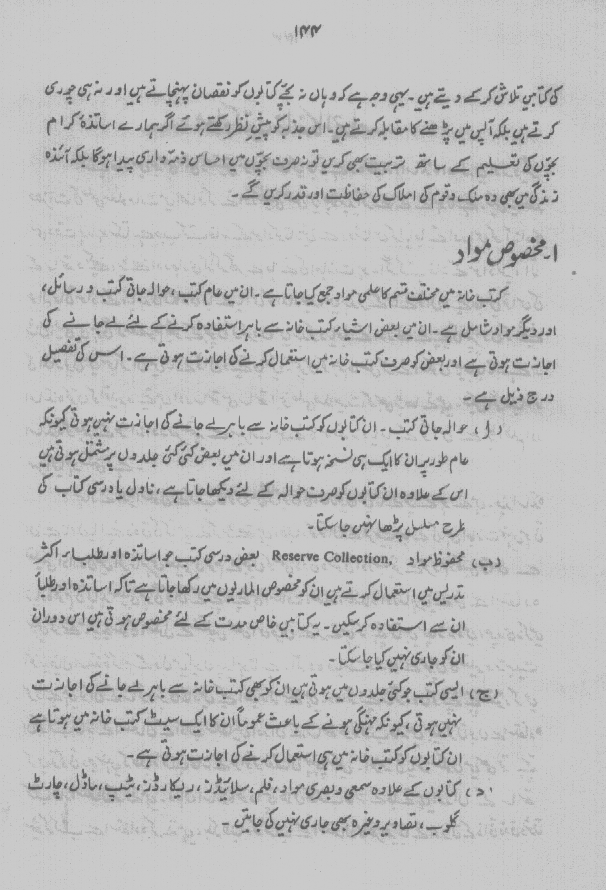 ۱۴۴
کی کتابیں تلاش کر کے دیتے ہیں۔ یہی وجہ ہے کہ وہاں نہ بچے کتابوں کو نقصان پہنچاتے ہیں اور نہ ہی چوری
کرتے ہیں بلکہ آپس میں پڑھنے کا مقابلہ کرتے ہیں۔ اس جذبہ کو پیشِ نظر رکھتے ہوئے اگر ہمارے اساتذۂ کرام
بچوں کی تعلیم کے ساتھ تربیت بھی کریں تو نہ صرف بچوں میں احساس ذمہ داری پیدا ہوگا بلکہ آئندہ
زندگی میں بھی وہ ملک و قوم کی املاک کی حفاظت اور قدر کریں گے۔
۱۔ مخصوص مواد
کتب خانہ میں مختلف قسم کا علمی مواد جمع کیا جاتا ہے۔ ان میں عام کتب، حوالہ جاتی کتب و رسائل،
اور دیگر مواد شامل ہے۔ ان میں بعض اشیاء کتب خانہ سے باہر استفادہ کرنے کے لئے لے جانے کی
اجازت ہوتی ہے اور بعض کو صرف کتب خانہ میں استعمال کرنے کی اجازت ہوتی ہے۔ اس کی تفصیل
درج ذیل ہے۔
(ا) حوالہ جاتی کتب۔ ان کتابوں کو کتب خانہ سے باہر لے جانے کی اجازت نہیں ہوتی کیونکہ
عام طور پر ان کا ایک ہی نسخہ ہوتا ہے اور ان میں بعض کئی کئی جلدوں پر مشتمل ہوتی ہیں
اس کے علاوہ ان کتابوں کو صرف حوالہ کے لئے دیکھا جاتا ہے، ناول یا درسی کتاب کی
طرح مسلسل پڑھا نہیں جا سکتا۔
(ب) محفوظ مواد Reserve Collection, بعض درسی کتب جو اساتذہ اور طلباء اکثر
تدریس میں استعمال کرتے ہیں ان کو مخصوص الماریوں میں رکھا جاتا ہے تاکہ اساتذہ اور طلباً
ان سے استفادہ کر سکیں۔ یہ کتابیں خاص مدت کے لئے مخصوص ہوتی ہیں اس دوران
ان کو جاری نہیں کیا جا سکتا۔
(ج) ایسی کتب جو کئی جلدوں میں ہوتی ہیں ان کو بھی کتب خانہ سے باہر لے جانے کی اجازت
نہیں ہوتی، کیونکہ مہنگی ہونے کے باعث عموماً ان کا ایک سیٹ کتب خانہ میں ہوتا ہے
ان کتابوں کو کتب خانہ میں ہی استعمال کرنے کی اجازت ہوتی ہے۔
(د) کتابوں کے علاوہ سمعی و بصری مواد، فلم، سلائیڈز، ریکارڈز، ٹیپ، ماڈل، چارٹ
گلوب، تصاویر وغیرہ بھی جاری نہیں کی جاتیں۔